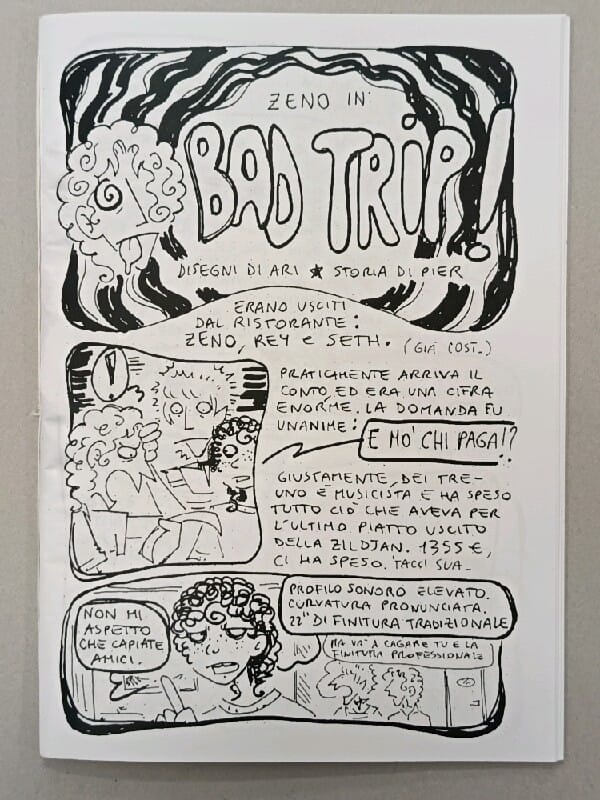 ZENO IN
BAD TRIP!
DISEGNI DI ARI ★ STORIA DI PIER
ERANO USCITI
DAL RISTORANTE:
ZENO, REY e SETH.
(GIÀ COST..)
PRATICAMENTE ARRIVA IL
CONTO, ED ERA UNA CIFRA
ENORME. LA DOMANDA FU
UNANIME:
E MO' CHI PAGA!?
GIUSTAMENTE, DEI TRE-
UNO È MUSICISTA E HA SPESO
TUTTO CIÒ CHE AVEVA PER
L'ULTIMO PIATTO USCITO
DELLA ZILDJAN. 1355 €,
CI HA SPESO. TACCI SUA.
NON MI
ASPETTO
CHE CAPIATE
AMICI.
PROFILO SONORO ELEVATO.
CURVATURA PRONUNCIATA.
22" DI FINITURA TRADIZIONALE
MA VA' A CAGARE TU E LA
FINITURA PROFESSIONALE